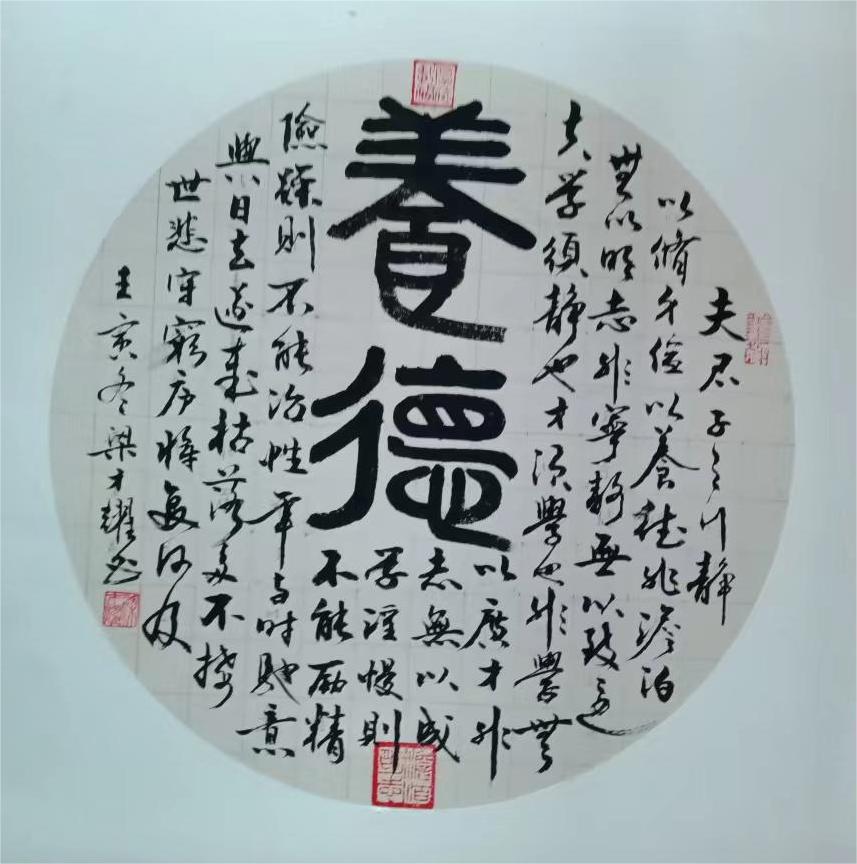 養德
夫君子之行静
以脩身儉以養德非澹泊
無以明志非寧静無以致遠
夫学須静也才須學也非學無
以廣才非
志無以成
学淫慢則
不能励精
險躁則不能冶性年与时馳意
與日去遂成枯落多不接
世悲守窮庐將复何及
壬寅冬梁才耀书